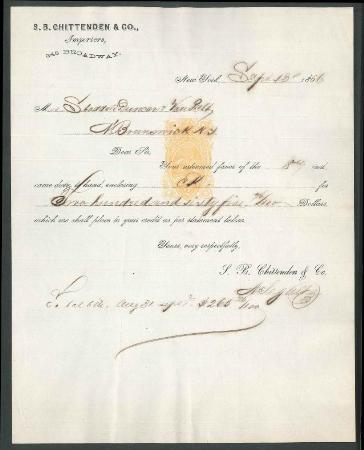 S. B. CHITTENDEN & CO.,
Importers,
BROADWAY.
New York, Sept 15 1866
M Duncan & Van Pelt
N. Brunswick N.J
Dear Sir,
Your esteemed favor of the and
came duly to hand, enclosing for
Two hundred and sixty five /100 Dollars,
which we shall place to your credit as per statement below.
Yours, very respectfully,
S. B. Chittenden & Co.
Aug $265 /100